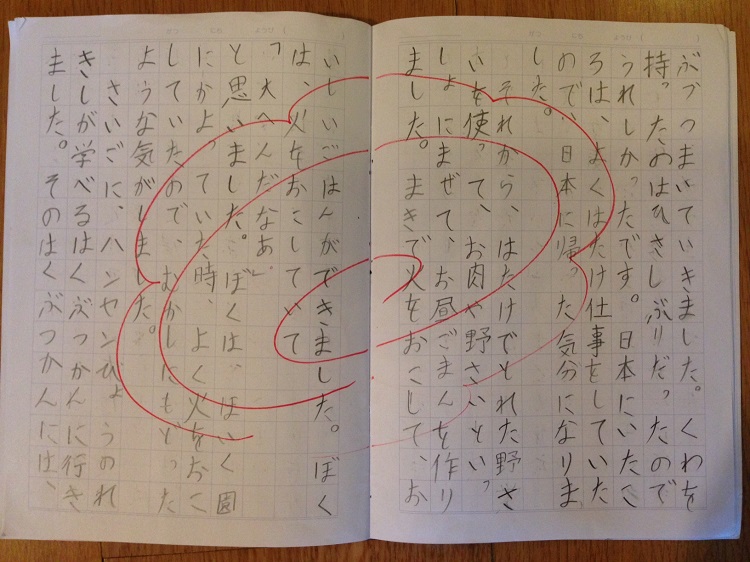 ぶづつまいていきました。くわを
持ったのはひさしぶりだったので
うれしかったです。日本にいたこ
ろは、よくはたけ仕事をしていた
ので、日本に帰った気分になりま
した。
それから、はたけでとれた野さ
いを使って、お肉や野さいといっ
しょにまぜて、お昼ごまんを作り
ました。まきで火をおこして、お
いしいごはんができました。ぼく
は、火をおこしていて
「大へんだなあ」
と思いました。ぼくは、ほいく園
にかよっていた時、よく火をおこ
していたので、むかしにもどった
ような気がしました。
さいごに、ハンセンびょうのれ
きしが学べるはくぶつかんに行き
ました。そのはくぶつかんには、